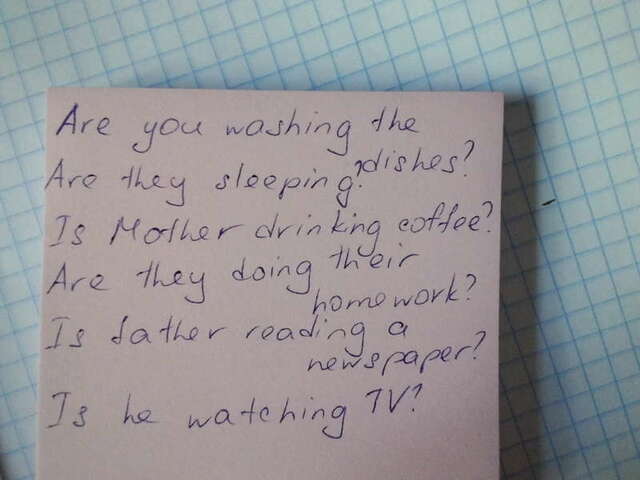 Are you washing the
dishes?
Are they sleeping?
Is Mother drinking coffee?
Are they doing their
homework?
Is father reading a
newspaper?
Is he watching TV?